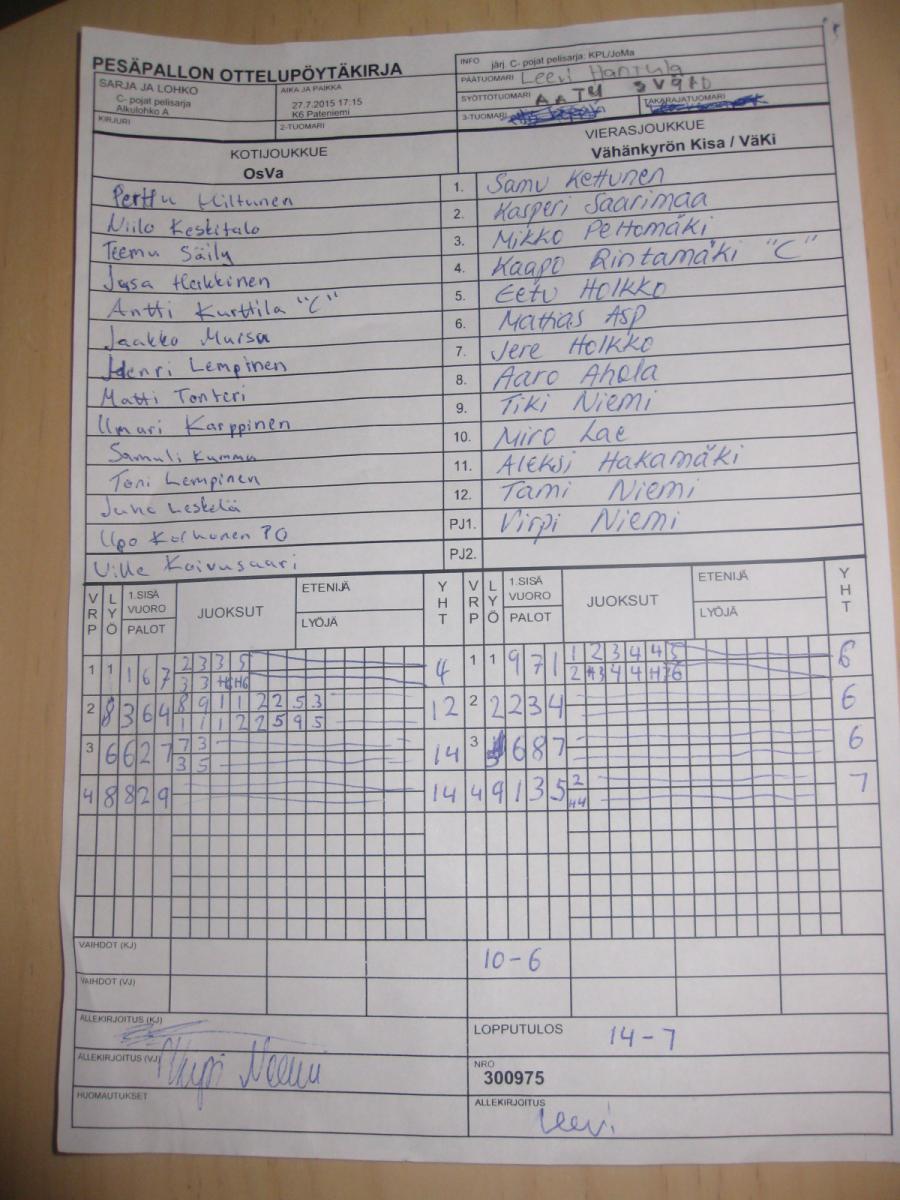 PESÄPALLON OTTELUPÖYTÄKIRJA
INFO järj. C- pojat pelisarja: KPL/JoMa
PÄÄTUOMARI Leevi Hantula
SARJA JA LOHKO
C- pojat pelisarja
Alkulohko A
AIKA JA PAIKKA
27.7.2015 17:15
K6 Pateniemi
SYÖTTÖTUOMARI AATU SVÄRD
3-TUOMARI
TAKARAJATUOMARI
KIRJURI
2-TUOMARI
KOTIJOUKKUE
OsVa
VIERASJOUKKUE
Vähänkyrön Kisa / VäKi
Perttu Hiltunen 1. Samu Kettunen
Niilo Keskitalo 2. Kasperi Saarimaa
Teemu Säily 3. Mikko Peltomäki
Jasa Heikkinen 4. Kaapo Rintamäki "C"
Antti Kurttila "C" 5. Eetu Holkko
Jaakko Mursa 6. Mathias Asp
Henri Lempinen 7. Jere Holkko
Matti Tonteri 8. Aaro Ahola
Ilmari Karppinen 9. Tiki Niemi
Samuli Kummu 10. Miro Lae
Toni Lempinen 11. Aleksi Hakamäki
Juho Leskelä 12. Tami Niemi
Upo PJ1. Virpi Niemi
Ville Koivusaari PJ2.
VRP LYÖ 1.SISÄ VUORO PALOT JUOKSUT ETENIJÄ LYÖJÄ YHT VRP LYÖ 1.SISÄ VUORO PALOT JUOKSUT ETENIJÄ LYÖJÄ YHT
1 1 1 6 7 2 3 3 5 4 1 1 9 7 1 1 2 3 4 4 5 6
3 3 H6 H6 2 H3 4 4 H7 6
2 8 3 6 4 8 9 1 1 2 2 5 3 12 2 2 2 3 4 6
1 1 1 2 2 5 9 5
3 6 6 2 7 7 3 14 3 6 8 7 6
3 5
4 8 8 2 9 14 4 9 1 3 5 2 7
44
VAIHDOT (KJ)
10-6
VAIHDOT (VJ)
ALLEKIRJOITUS (KJ)
LOPPUTULOS 14-7
ALLEKIRJOITUS (VJ) Virpi Niemi
NRO
300975
HUOMAUTUKSET
ALLEKIRJOITUS
Leevi